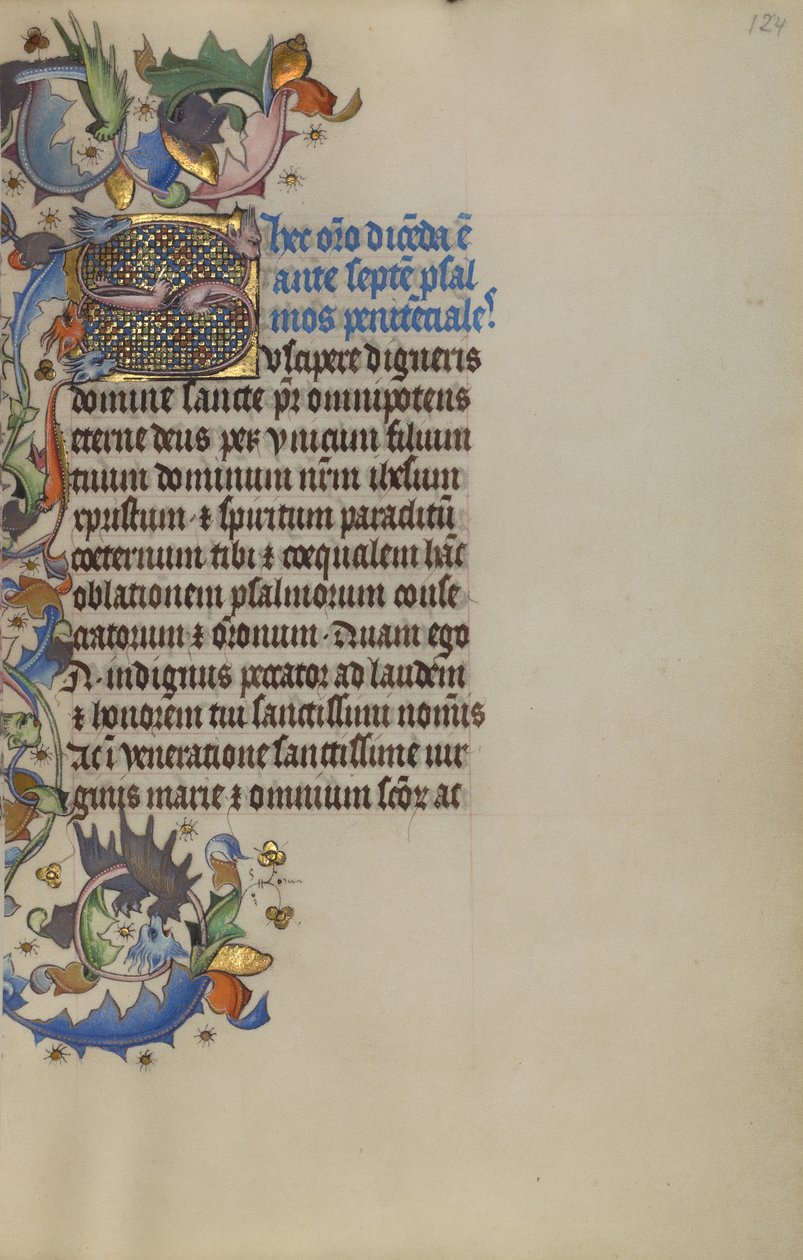 124
hec or̄o dicēda ē
ante septē psal
mos penitēciale's
Suscipere digneris
domine sancte pr̄ omnipotens
eterne deus per vnicum filium
tuum dominum nr̄m ihesum
xpristum · ⁊ spiritum paraclitū
coeternum tibi ⁊ coequalem hāc
oblationem psalmorum conse
cratorum ⁊ or̄onum · Quam ego
N · indignus peccator ad laudem
⁊ honorem tui sanctissimi nom̄is
Ac ī veneratione sanctissime uir
ginis marie ⁊ omnium sc̄oꝝ ac